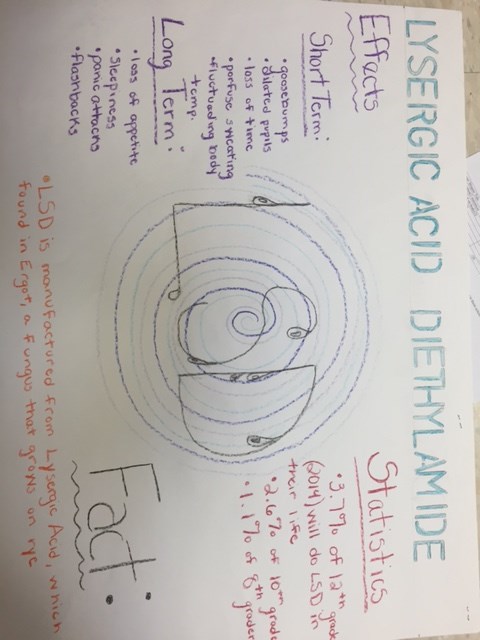 LYSERGIC ACID DIETHYLAMIDE
Effects
Short Term:
• goosebumps
• dilated pupils
• loss of time
• porfuse sweating
• fluctuading body
temp.
Long Term:
• loss of appetite
• sleepiness
• panic attacks
• flashbacks
LSD
Statistics
• 3.7% of 12th grade
(2014) will do LSD in
their life
• 2.6% of 10th grade
• 1.1% of 8th grader
Fact:
• LSD is manufactured from Lysergic Acid, which
found in Ergot, a fungus that grows on rye